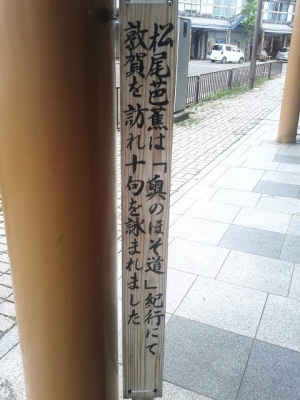 松尾芭蕉は「奥のほそ道」紀行にて
敦賀を訪れ十句を詠まれました